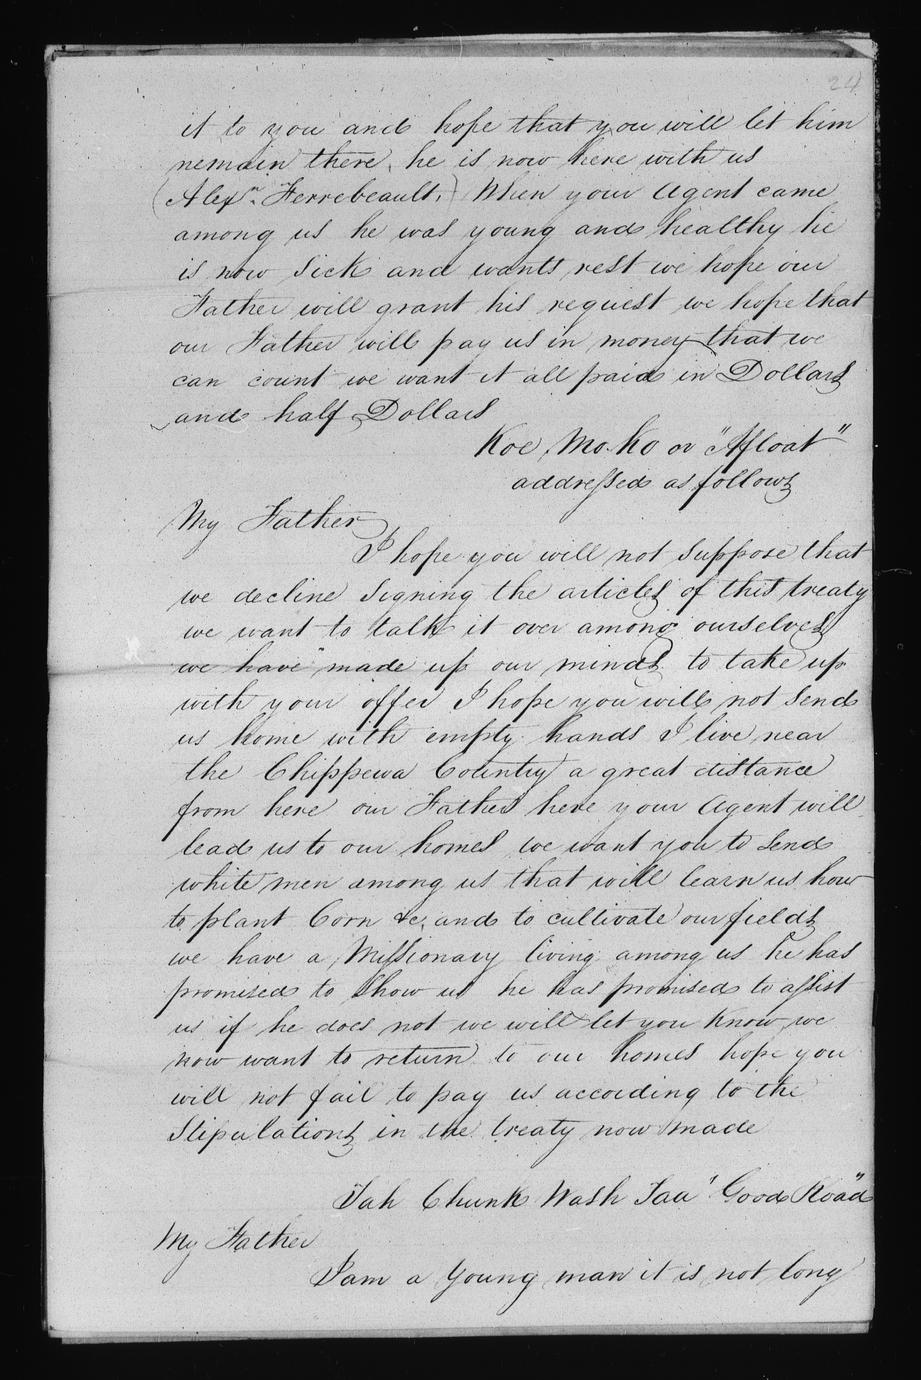 24
it to you and hope that you will let him
remain there, he is now here with us
(Alexr. Ferrebeault.) When your Agent came
among us he was young and healthy he
is now Sick and wants rest we hope our
Father will grant his request we hope that
our Father will pay us in money that we
can count we want it all paid in Dollars
and half Dollars
Koe, Mo. Ko or "Afloat"
addressed as follows
My Father
I hope you will not suppose that
we decline Signing the articles of this treaty
we want to talk it over among ourselves
we have made up our minds to take up
with your offer I hope you will not Send
us home with empty hands I live near
the Chippewa Country a great distance
from here our Father here your Agent will
lead us to our homes we want you to Send
white men among us that will learn us how
to plant Corn &c, and to cultivate our fields
we have a Missionary living among us he has
promised to Show us he has promised to assist
us if he does not we will let you Know, we
now want to return to our homes hope you
will not fail to pay us according to the
Stipulations in the treaty now made
Tah Chunk Wash Taa "Good Road"
My Father
I am a Young man it is not long